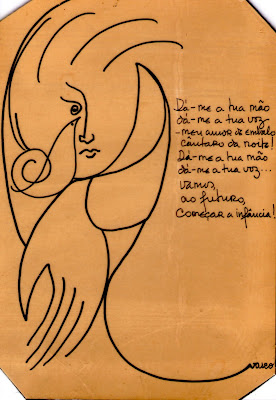 Dá-me a tua mão
dá-me a tua voz
-meu amor de embalo!
cântaro da noite!
Dá-me a tua mão
dá-me a tua voz...
vamos,
ao futuro,
começar a infância!
vasco